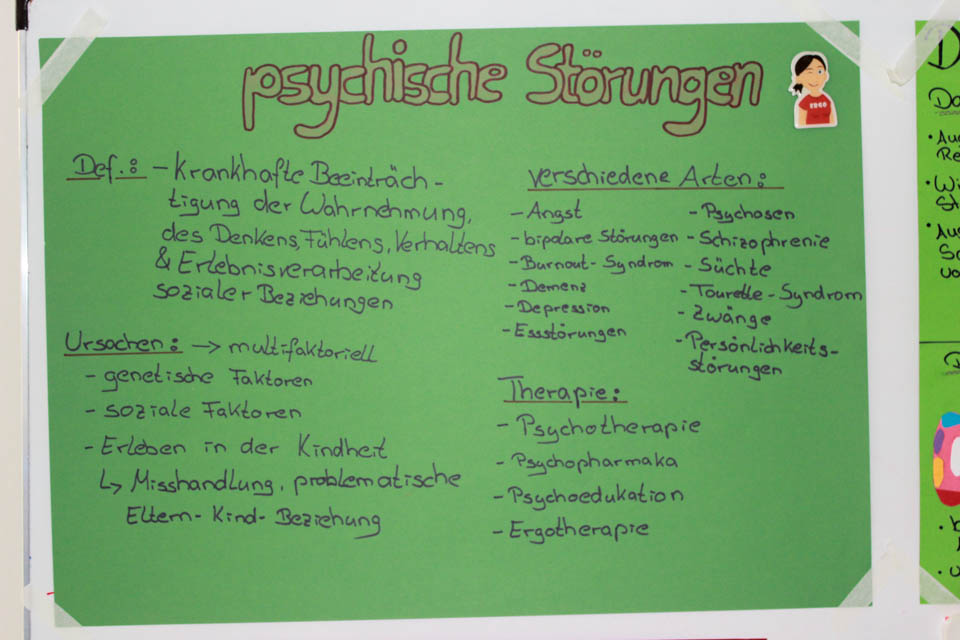 psychische Störungen
ERGO
Def.: - Krankhafte Beeinträch-
tigung der Wahrnehmung,
des Denkens, Fühlens, Verhaltens
& Erlebnisverarbeitung
sozialer Beziehungen
Ursachen: → multifaktoriell
- genetische Faktoren
- soziale Faktoren
- Erleben in der Kindheit
↳ Misshandlung, problematische
Eltern-Kind-Beziehung
verschiedene Arten:
- Angst
- bipolare Störungen
- Burnout-Syndrom
- Demenz
- Depression
- Essstörungen
- Psychosen
- Schizophrenie
- Süchte
- Tourette-Syndrom
- Zwänge
- Persönlichkeits-
störungen
Therapie:
- Psychotherapie
- Psychopharmaka
- Psychoedukation
- Ergotherapie